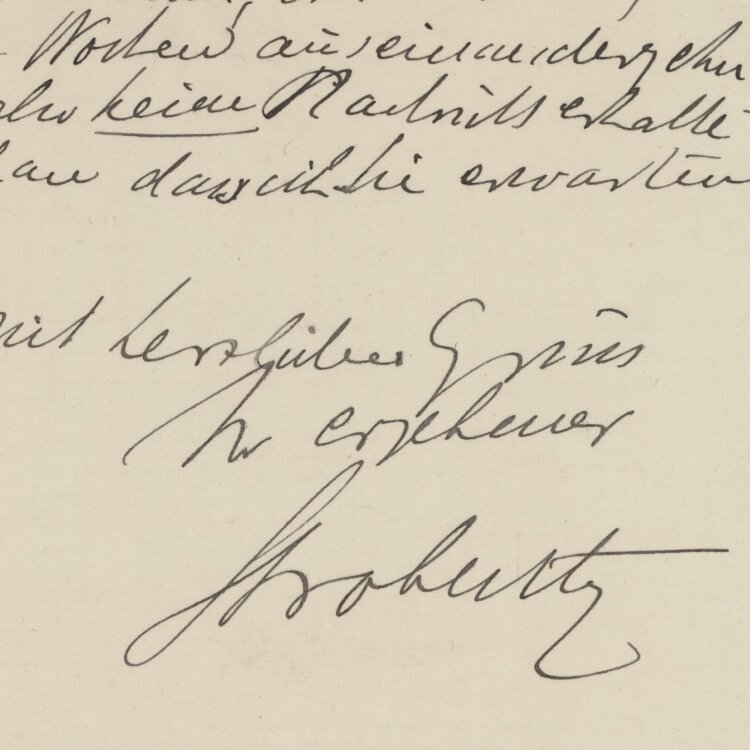 Wochen auseinandergehn
keine Nachricht erhalte
dass ich Sie erwarten
mit herzlichem Gruss
Ihr ergebener